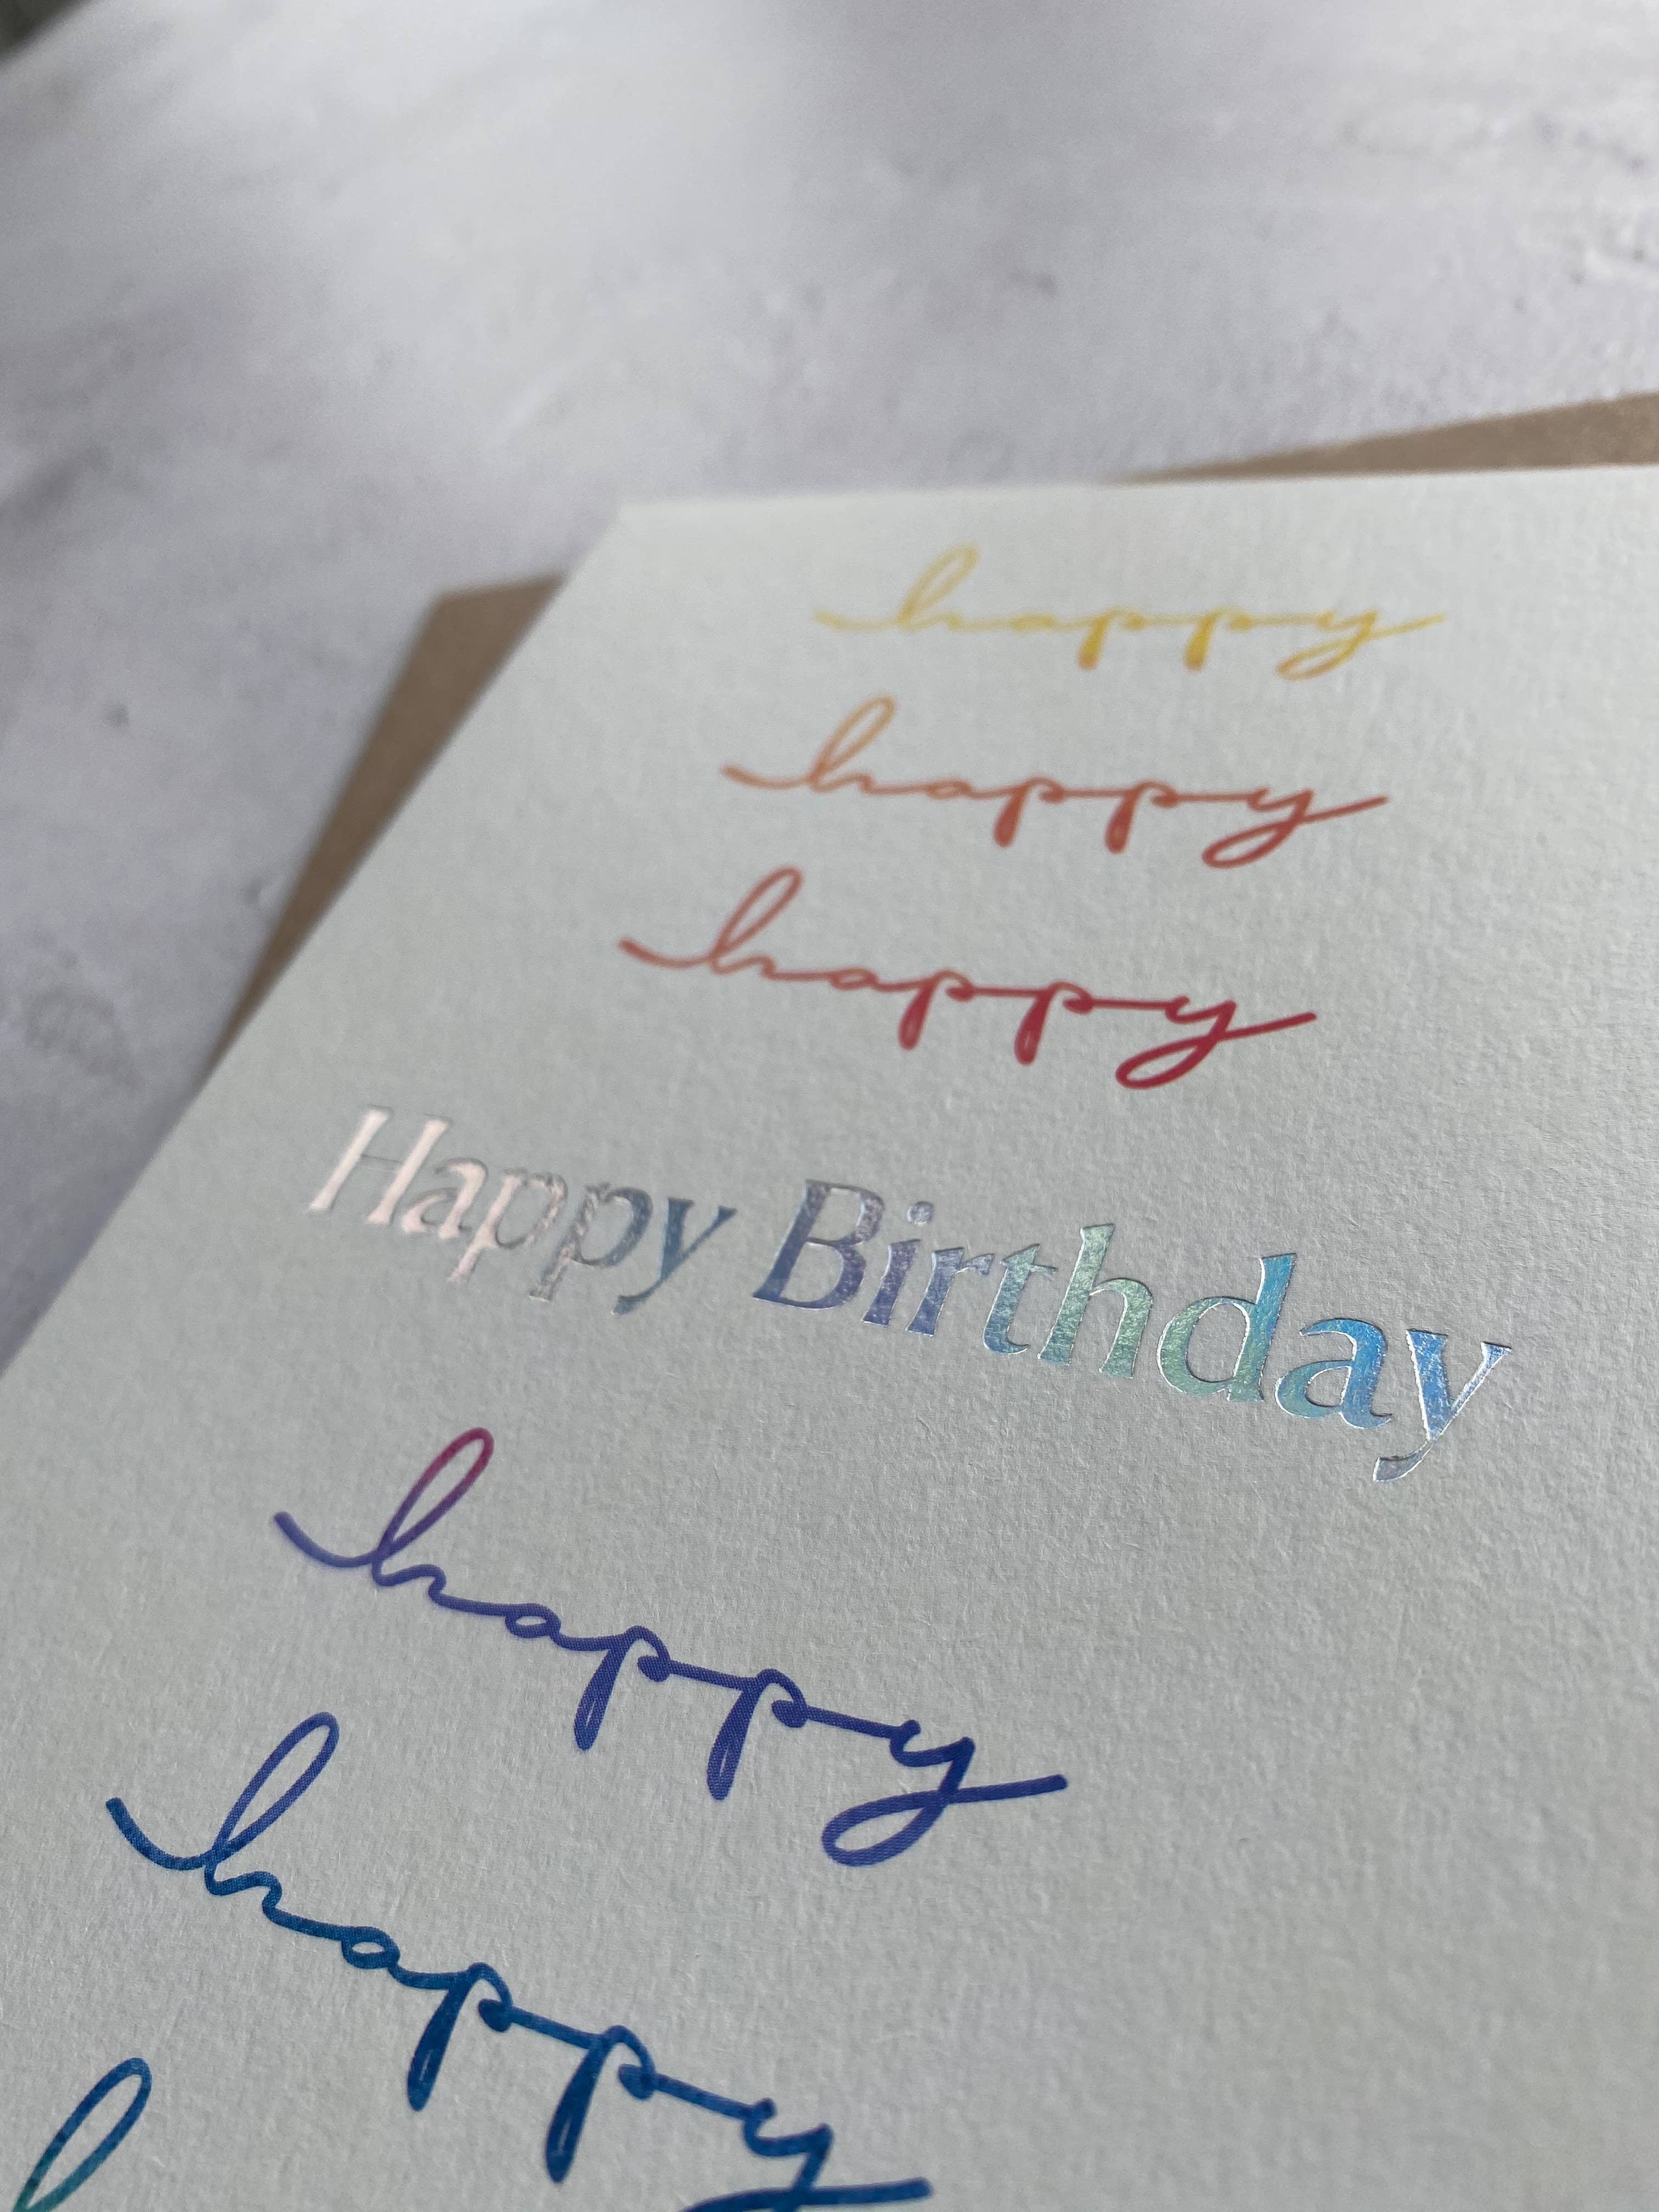 happy
happy
happy
Happy Birthday
happy
happy